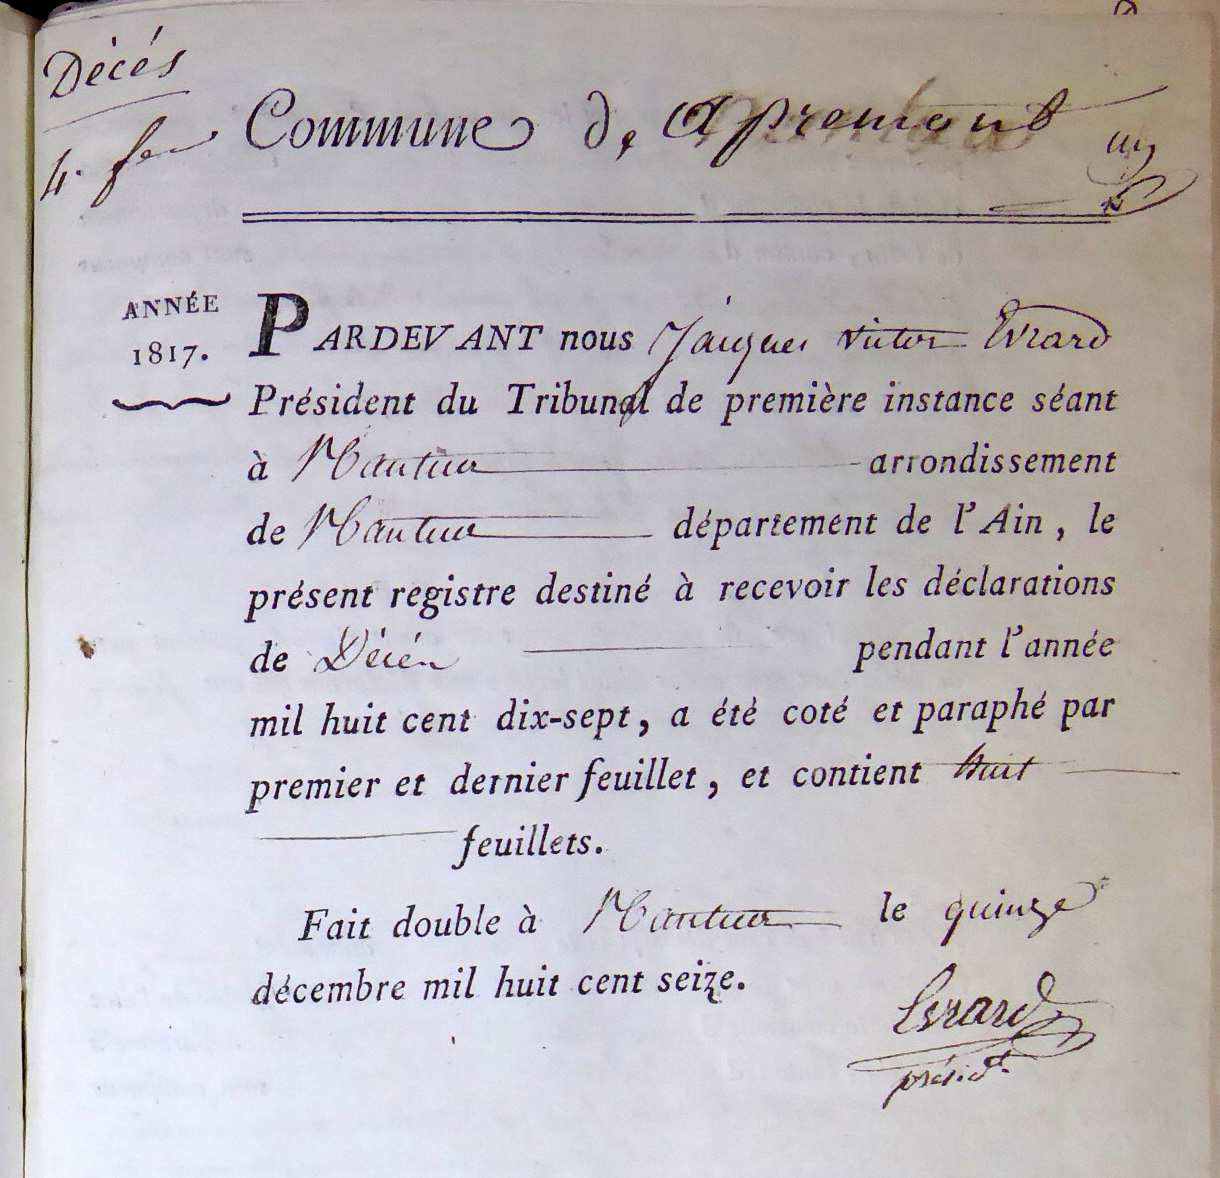 Décés
4. fer
Commune de apremont
un
ANNÉE
1817.
PARDEVANT nous Jacques victor Evrard
Président du Tribunal de première instance séant
à Nantua arrondissement
de Nantua département de l'Ain, le
présent registre destiné à recevoir les déclarations
de Décés pendant l'année
mil huit cent dix-sept, a été coté et paraphé par
premier et dernier feuillet, et contient huit
feuillets.
Fait double à Nantua le quinze
décembre mil huit cent seize.
Evrard
présidt.